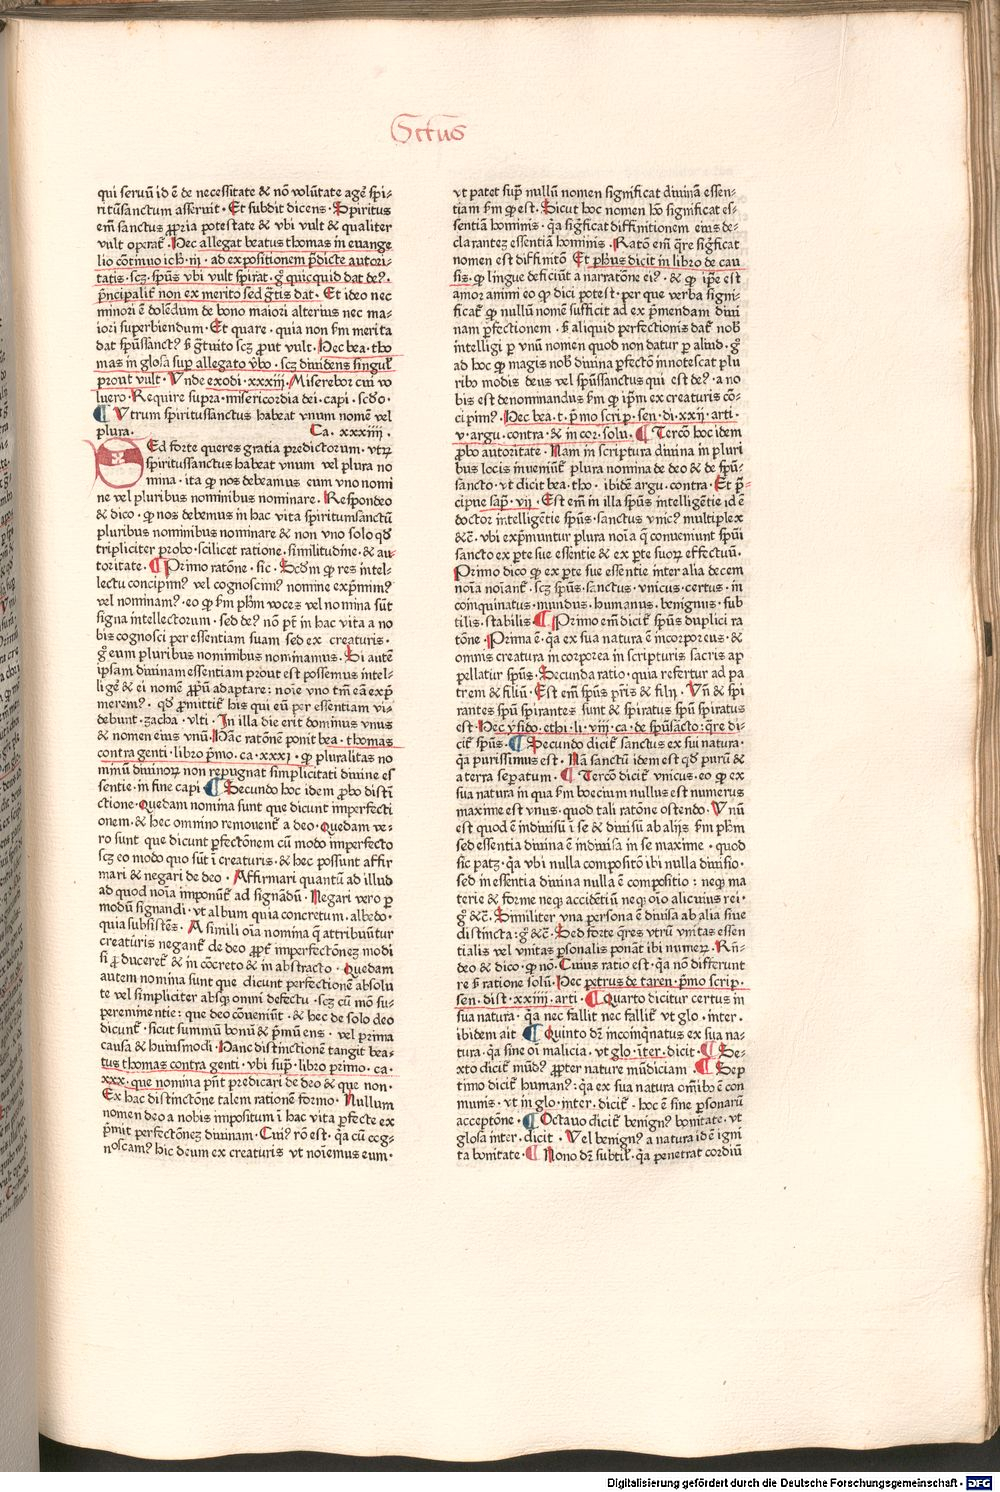 Sctus
qui seruū id ē de necessitate & nō volūtate agē spi⸗
ritūsanctum asseruit · Et subdit dicens · Spiritus
em̄ sanctus ꝓpria potestate & vbi vult & qualiter
vult operat᷑ · Hec allegat beatus thomas in euange
lio cōtinuo ich̄ · iij · ad expositionem p̄dicte autori⸗
tatis · scꝫ · spūs vbi vult spirat · g̊ quicquid dat deꝰ ·
p̄ncipalit᷑ non ex merito sed ḡtis dat · Et ideo nec
minori ē dolēdum de bono maiori alterius nec ma⸗
iori superbiendum · Et quare · quia non s̄m merita
dat spūssanctꝰ s̄ ḡtuito scꝫ ꝓut vult · Hec bea · tho
mas in glosa sup̄ allegato v̄bo · scꝫ diuidens singul᷑
prout vult · Vnde exodi · xxxiij · Miserebor cui vo
luero · Require supra · misericordia dei · capi · scd̄o ·
¶ Vtrum spiritussanctus habeat vnum nomē vel
plura · Ca · xxxiiij ·
Sed forte queres gratia predictorum · vtrꝫ
spiritussanctus habeat vnum vel plura no
mina · ita ꝙ nos debeamus eum vno nomi
ne vel pluribus nominibus nominare · Respondeo
& dico · ꝙ nos debemus in hac vita spiritumsanctū
pluribus nominibus nominare & non vno solo qd̄
tripliciter probo · scilicet ratione · similitudine · & au⸗
toritate · ¶ Primo ratōne · sic · Scd̄m ꝙ res intel⸗
lectu concipimꝰ vel cognoscimꝰ nomine exp̄mimꝰ
vel nominamꝰ · eo ꝙ s̄m ph̄m voces vel nomina sūt
signa intellectorum · sed deꝰ nō pt̄ in hac vita a no
bis cognosci per essentiam suam sed ex creaturis ·
g̊ eum pluribus nominibus nominamus · Si autē
ipsam diuinam essentiam prout est possemus intel⸗
ligē & ei nomē ꝓp̄ū adaptare : noīe vno tm̄ eā exp̄
merem · qd̄ ꝓmittit᷑ his qui eū per essentiam vi⸗
debunt · zacha · vlti · In illa die erit dominus vnus
& nomen eius vnū · Hāc ratōnē ponit bea · thomas
contra genti · libro p̄mo · ca · xxxi · ꝙ pluralitas no
minū diuinoꝝ non repugnat simplicitati diuine es
sentie · in fine capi ¶ Secundo hoc idem ꝓbo distī
ctione · Quedam nomina sunt que dicunt imperfecti
onem · & hec omnino remouent᷑ a deo · Quedam ve⸗
ro sunt que dicunt perfectōnem cū modo imperfecto
scꝫ eo modo quo sūt ī creaturis · & hec possunt affir
mari & negari de deo · Affirmari quantū ad illud
ad quod noīa imponūt᷑ ad signādū · Negari vero ꝑ
modū signandi · vt album quia concretum · albedo ·
quia subsistēs · A simili oīa nomina q̄ attribuūtur
creaturis negant᷑ de deo ꝓpt᷑ imperfectōneꝫ modi
si ꝓduceret᷑ & in cōcreto & in abstracto · Quedam
autem nomina sunt que dicunt perfectionē absolu
te vel simpliciter absqꝫ omni defectu · scꝫ cū mō su⸗
pereminentie : que deo cōueniūt · & hec de solo deo
dicunt᷑ · sicut summū bonū & p̄mū ens · vel prima
causa & huiusmodi · Hanc distinctionē tangit bea⸗
tus thomas contra genti · vbi sup̄ · libro primo · ca ·
xxx · que nomina pn̄t predicari de deo & que non ·
Ex hac distinctōne talem rationē formo · Nullum
nomen deo a nobis impositum ī hac vita ꝑfecte ex
p̄mit perfectōneꝫ diuinam · Cuiꝰ rō est · q̄a cū cog⸗
noscamꝰ hic deum ex creaturis vt noīemus eum ·
vt patet sup̄ nullū nomen significat diuinā essen⸗
tiam s̄m ꝙ est · Sicut hoc nomen hō significat es⸗
sentiā hominis · q̄a sig̅ficat diffinitionem eius de⸗
clarantez essentiā hominis · Ratō em̄ q̄re sig̅ficat
nomen est diffinitō Et ph̄us dicit in libro de cau
sis · ꝙ lingue deficiūt a narratōne eiꝰ · & ꝙ ip̄e est
amor animi eo ꝙ dici potest · per que verba signi⸗
ficat᷑ ꝙ nullū nomē sufficit ad ex p̄mendam diui
nam ꝑfectionem · s̄ aliquid perfectionis dat᷑ nob̄
intelligi ꝑ vnū nomen quod non datur ꝑ aliud · g̊
ad hoc ꝙ magis nob̄ diuina ꝑfectō innotescat plu
ribo modis deus vel spūssanctus qui est deꝰ · a no
bis est denominandus s̄m ꝙ ip̄m ex creaturis cō⸗
cipimꝰ · Hec bea · t · p̄mo scrip · sen · di · xxij · arti ·
v · argu · contra · & in cor · solu · ¶ Tercō hoc idem
ꝓbo autoritate · Nam in scriptura diuina in pluri
bus locis inueniūt᷑ plura nomina de deo & de spū⸗
sancto · vt dicit bea · tho · ibidē argu · contra · Et p̄⸗
cipue sap̄ · vij · Est em̄ in illa spūs intelligētie id ē
doctor intelligētie spūs · sanctus vnicꝰ multiplex
&c̄ · vbi exp̄muntur plura noīa q̄ conueniunt spūi
sancto ex ꝑte sue essentie & ex ꝑte suoꝝ effectuū ·
Primo dico ꝙ ex ꝑte sue essentie inter alia decem
noīa noīant᷑ · scꝫ spūs · sanctus · vnicus · certus · in
coinquinatus · mundus · humanus · benignus · sub
tilis · stabilis · ¶ Primo em̄ dicit᷑ spūs duplici ra
tōne · Prima ē · q̄a ex sua natura ē incorporeus · &
omnis creatura incorporea in scripturis sacris ap
pellatur spūs · Secunda ratio · quia refertur ad pa
trem & filiū · Est em̄ spūs p̄ris & filij · Vn̄ & spi
rantes spūs spirantes sunt & spiratus spūs spiratus
est · Hec ysido · ethi · li · viij · ca · de spūsācto : q̄re di⸗
cit᷑ spūs · ¶ Secundo dicit᷑ sanctus ex sui natura ·
q̄a purissimus est · Nā sanctū idem est qd̄ purū &
a terra seꝑatum · ¶ Tercō dicit᷑ vnicus · eo ꝙ ex
sua natura in qua s̄m boecium nullus est numerus
maxime est vnus · quod tali ratōne ostendo · Vnū
est quod ē indiuisū ī se & diuisū ab alijs s̄m ph̄m
sed essentia diuina ē indiuisa in se maxime · quod
sic patꝫ · q̄a vbi nulla compositō ibi nulla diuisio ·
sed in essentia diuina nulla ē compositio : neqꝫ ma
terie & forme neqꝫ accidētiū neqꝫ oīo alicuius rei ·
g̊ &c̄ · Similiter vna persona ē diuisa ab alia siue
distincta : g̊ &c̄ · Sed forte q̄res vtrū vnitas essen
tialis vel vnitas ꝑsonalis ponāt ibi numeꝝ · Rn̄⸗
deo & dico · ꝙ nō · Cuius ratio est · q̄a nō differunt
re s̄ ratione solū · Hec petrus de taren · p̄mo scrip ·
sen · dist · xxiiij · arti · ¶ Quarto dicitur certus in
sua natura · q̄a nec fallit nec fallit᷑ vt glo · inter ·
ibidem ait ¶ Quinto dꝫ incoinq̄natus ex sua na⸗
tura · q̄a sine oī malicia · vt glo · īter · dicit · ¶ Se⸗
xto dicit᷑ mūdꝰ ꝓpter nature mūdiciam · ¶ Sep
timo dicit᷑ humanꝰ : q̄a ex sua natura om̄ibo ē con
munis · vt in glo · inter · dicit᷑ · hoc ē sine ꝑsonarū
acceptōne · ¶ Octauo dicit᷑ benignꝰ bonitate · vt
glosa inter · dicit · Vel benignꝰ a natura id ē igni
ta bonitate · ¶ Nono dꝫ subtil᷑ · q̄a penetrat cordiū
Digitalisierung gefördert durch die Deutsche Forschungsgemeinschaft - DFG